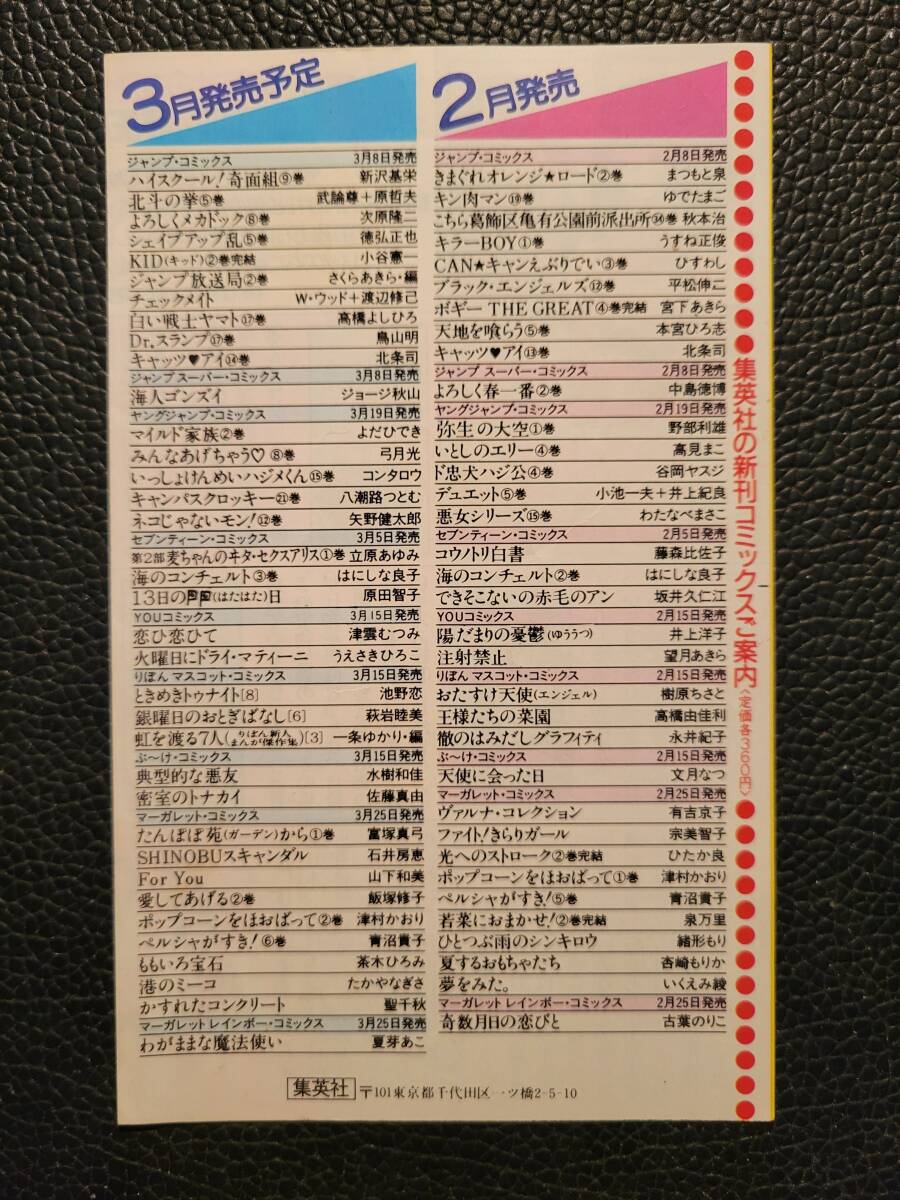 3月発売予定
ジャンプ・コミックス 3月8日発売
ハイスクール!奇面組⑨巻 新沢基栄
北斗の拳⑤巻 武論尊+原哲夫
よろしくメカドック⑧巻 次原隆二
シェイプアップ乱⑤巻 徳弘正也
KID(キッド)②巻完結 小谷憲一
ジャンプ放送局②巻 さくらあきら・編
チェックメイト W・ウッド+渡辺修己
白い戦士ヤマト⑰巻 高橋よしひろ
Dr.スランプ⑰巻 鳥山明
キャッツ♥アイ⑭巻 北条司
ジャンプ スーパー・コミックス 3月8日発売
海人ゴンズイ ジョージ秋山
ヤングジャンプ・コミックス 3月19日発売
マイルド家族②巻 よだひでき
みんなあげちゃう♡⑧巻 弓月光
いっしょけんめいハジメくん⑮巻 コンタロウ
キャンバスクロッキー㉑巻 八潮路つとむ
ネコじゃないモン!⑫巻 矢野健太郎
セブンティーン・コミックス 3月5日発売
第2部麦ちゃんのヰタ・セクスアリス①巻 立原あゆみ
海のコンチェルト③巻 はにしな良子
13日の (はたはた)日 原田智子
YOUコミックス 3月15日発売
恋ひ恋ひて 津雲むつみ
火曜日にドライ・マティーニ うえさきひろこ
りぼん マスコット・コミックス 3月15日発売
ときめきトゥナイト[8] 池野恋
銀曜日のおとぎばなし[6] 萩岩睦美
虹を渡る7人(りぼん新人まんが傑作集)[3] 一条ゆかり・編
ぶ〜け・コミックス 3月15日発売
典型的な悪友 水樹和佳
密室のトナカイ 佐藤真由
マーガレット・コミックス 3月25日発売
たんぽぽ苑(ガーデン)から①巻 富塚真弓
SHINOBUスキャンダル 石井房恵
For You 山下和美
愛してあげる②巻 飯塚修子
ポップコーンをほおばって②巻 津村かおり
ペルシャがすき!⑥巻 青沼貴子
ももいろ宝石 茶木ひろみ
港のミーコ たかやなぎさ
かすれたコンクリート 聖千秋
マーガレット レインボー・コミックス 3月25日発売
わがままな魔法使い 夏芽あこ
2月発売
ジャンプ・コミックス 2月8日発売
きまぐれオレンジ★ロード②巻 まつもと泉
キン肉マン⑲巻 ゆでたまご
こちら葛飾区亀有公園前派出所㉞巻 秋本治
キラーBOY①巻 うすね正俊
CAN★キャンえぶりでい③巻 ひすわし
ブラック・エンジェルズ⑫巻 平松伸二
ボギー THE GREAT④巻完結 宮下あきら
天地を喰らう⑤巻 本宮ひろ志
キャッツ♥アイ⑬巻 北条司
ジャンプ スーパー・コミックス 2月8日発売
よろしく春一番②巻 中島徳博
ヤングジャンプ・コミックス 2月19日発売
弥生の大空①巻 野部利雄
いとしのエリー④巻 高見まこ
ド忠犬ハジ公④巻 谷岡ヤスジ
デュエット⑤巻 小池一夫+井上紀良
悪女シリーズ⑮巻 わたなべまさこ
セブンティーン・コミックス 2月5日発売
コウノトリ白書 藤森比佐子
海のコンチェルト②巻 はにしな良子
できそこないの赤毛のアン 坂井久仁江
YOUコミックス 2月15日発売
陽だまりの憂鬱(ゆううつ) 井上洋子
注射禁止 望月あきら
りぼん マスコット・コミックス 2月15日発売
おたすけ天使(エンジェル) 樹原ちさと
王様たちの菜園 高橋由佳利
徹のはみだしグラフィティ 永井紀子
ぶ〜け・コミックス 2月15日発売
天使に会った日 文月なつ
マーガレット・コミックス 2月25日発売
ヴァルナ・コレクション 有吉京子
ファイト!きらりガール 宗美智子
光へのストローク②巻完結 ひたか良
ポップコーンをほおばって①巻 津村かおり
ペルシャがすき!⑤巻 青沼貴子
若菜におまかせ!②巻完結 泉万里
ひとつぶ雨のシンキロウ 緒形もり
夏するおもちゃたち 杏崎もりか
夢をみた。 いくえみ綾
マーガレット レインボー・コミックス 2月25日発売
奇数月日の恋びと 古葉のりこ
集英社の新刊コミックスご案内〈定価各360円〉
集英社 〒101東京都千代田区一ツ橋2-5-10